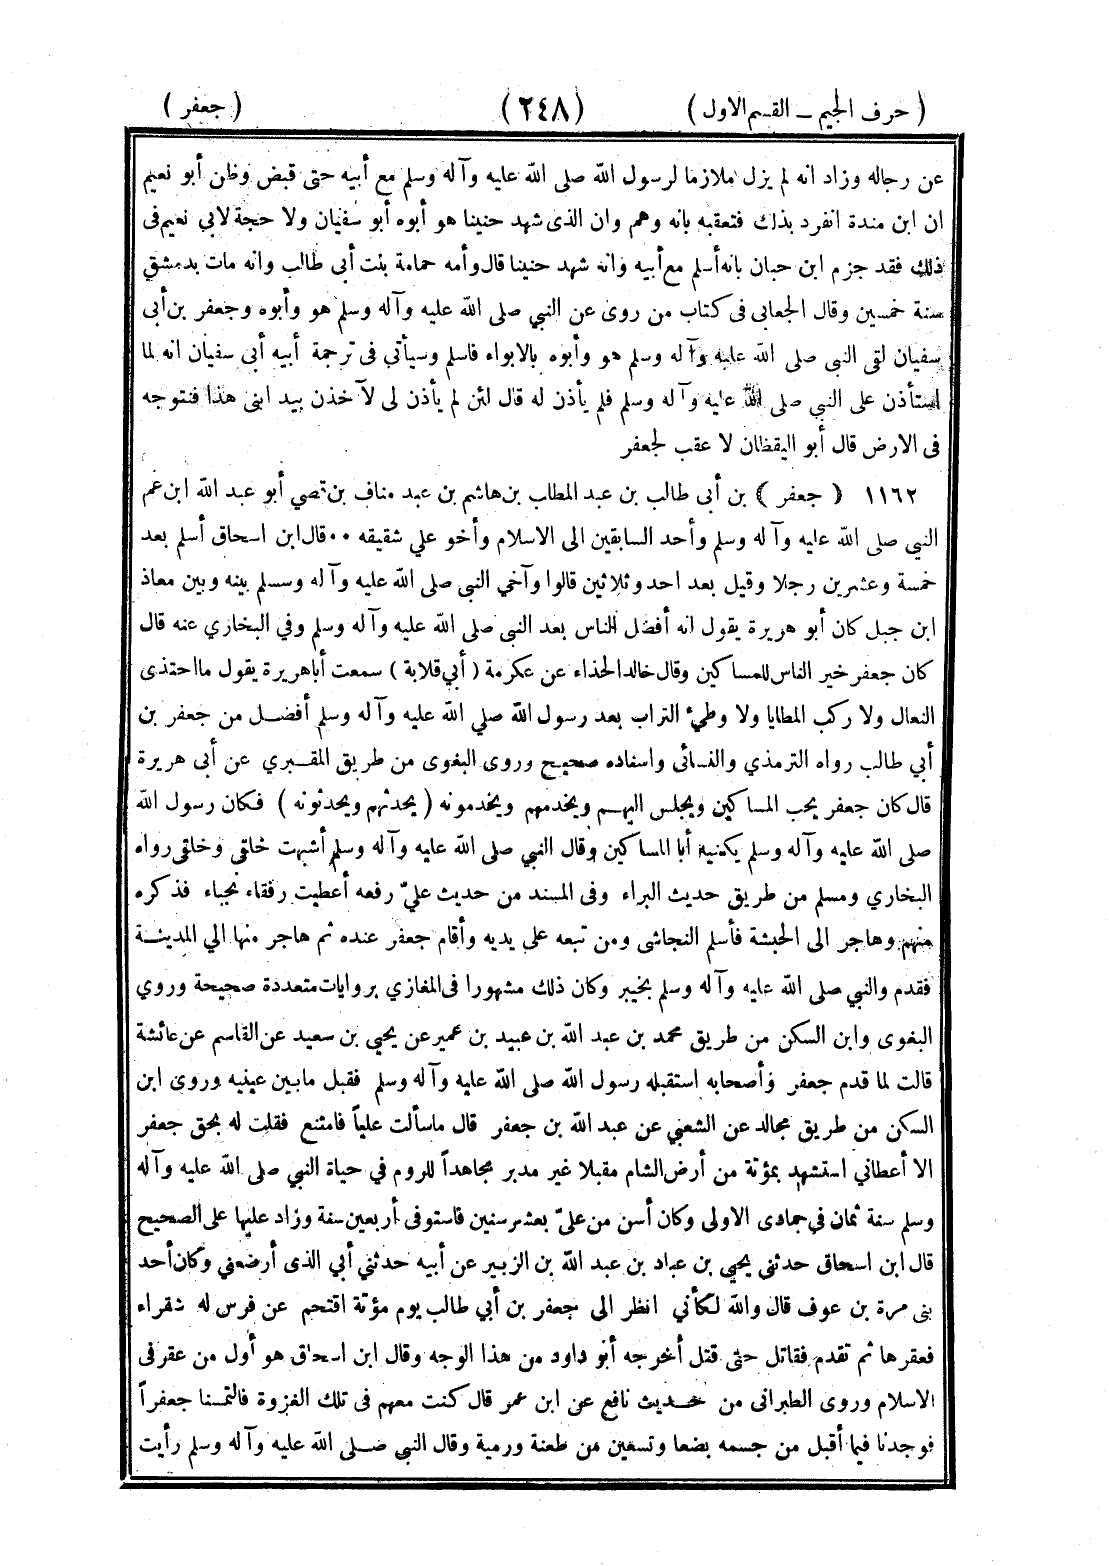 ( حرف الجيم ــ القسم الاول ) (٢٤٨) ( جعفر )
عن رجاله وزاد انه لم يزل ملازما لرسول الله صلى الله عليه وآله وسلم مع أبيه حتى قبض وظن أبو نعيم
ان ابن مندة انفرد بذلك فتعقبه بانه وهم وان الذى شهد حنينا هو أبوه أبو سفيان ولا حجة لابي نعيم فى
ذلك فقد جزم ابن حبان بانه أسلم مع أبيه وانه شهد حنينا قال وأمه حمامة بنت أبى طالب وانه مات بدمشق
سنة خمسين وقال الجعابى فى كتاب من روى عن النبي صلى الله عليه وآله وسلم هو وأبوه وجعفر بن أبى
سفيان لقى النبى صلى الله عليه وآله وسلم هو وأبوه بالابواء فاسلم وسيأتى فى ترجمة أبيه أبى سفيان انه لما
استأذن على النبي صلى الله عليه وآله وسلم فلم يأذن له قال لئن لم يأذن لى لآخذن بيد ابنى هذا فنتوجه
فى الارض قال أبو اليقظان لا عقب لجعفر
١١٦٢ ﴿ جعفر ﴾ بن أبى طالب بن عبد المطلب بن هاشم بن عبد مناف بن قصي أبو عبد الله ابن عم
النبي صلى الله عليه وآله وسلم وأحد السابقين الى الاسلام وأخو علي شقيقه ٠٠ قال ابن اسحاق أسلم بعد
خمسة وعشرين رجلا وقيل بعد احد وثلاثين قالوا وآخي النبى صلى الله عليه وآله وسسلم بينه وبين معاذ
ابن جبل كان أبو هريرة يقول انه أفضل الناس بعد النبى صلى الله عليه وآله وسلم وفي البخاري عنه قال
كان جعفر خير الناس للمساكين وقال خالد الحذاء عن عكرمة ( أبي قلابة ) سمعت أبا هريرة يقول ما احتذى
النعال ولا ركب المطايا ولا وطيء التراب بعد رسول الله صلي الله عليه وآله وسلم أفضل من جعفر بن
أبي طالب رواه الترمذي والنسائى واسناده صحيح وروى البغوى من طريق المقبري عن أبى هريرة
قال كان جعفر يحب المساكين ويجلس اليهم ويخدمهم ويخدمونه ( يحدثهم ويحدثونه ) فكان رسول الله
صلى الله عليه وآله وسلم يكنيه أبا المساكين وقال النبي صلى الله عليه وآله وسلم أشبهت خلقي وخلقى رواه
البخاري ومسلم من طريق حديث البراء وفى المسند من حديث عليّ رفعه أعطيت رفقاء نجباء فذكره
منهم وهاجر الى الحبشة فأسلم النجاشى ومن تبعه على يديه وأقام جعفر عنده ثم هاجر منها الي المدينة
فقدم والنبي صلى الله عليه وآله وسلم بخيبر وكان ذلك مشهورا فى المغازي بروايات متعددة صحيحة وروي
البغوى وابن السكن من طريق محمد بن عبد الله بن عبيد بن عمير عن يحيي بن سعيد عن القاسم عن عائشة
قالت لما قدم جعفر وأصحابه استقبله رسول الله صلى الله عليه وآله وسلم فقبل مابين عينيه وروى ابن
السكن من طريق مجالد عن الشعبي عن عبد الله بن جعفر قال ماسألت علياً فامتنع فقلت له بحق جعفر
الا أعطاني استشهد بمؤتة من أرض الشام مقبلا غير مدبر مجاهداً للروم في حياة النبي صلى الله عليه وآله
وسلم سنة ثمان في جمادى الاولى وكان أسن من عليّ بعشر سنين فاستوفى أربعين سنة وزاد عليها على الصحيح
قال ابن اسحاق حدثنى يحيى بن عباد بن عبد الله بن الزبير عن أبيه حدثني أبي الذى أرضعني وكان أحد
بنى مرة بن عوف قال والله لكأني انظر الى جعفر بن أبي طالب يوم مؤتة اقتحم عن فرس له شقراء
فعقرها ثم تقدم فقاتل حتى قتل أخرجه أبو داود من هذا الوجه وقال ابن اسحاق هو أول من عقر فى
الاسلام وروى الطبرانى من حديث نافع عن ابن عمر قال كنت معهم فى تلك الغزوة فالتمسنا جعفراً
فوجدنا فيما أقبل من جسمه بضعا وتسعين من طعنة ورمية وقال النبى صلى الله عليه وآله وسلم رأيت